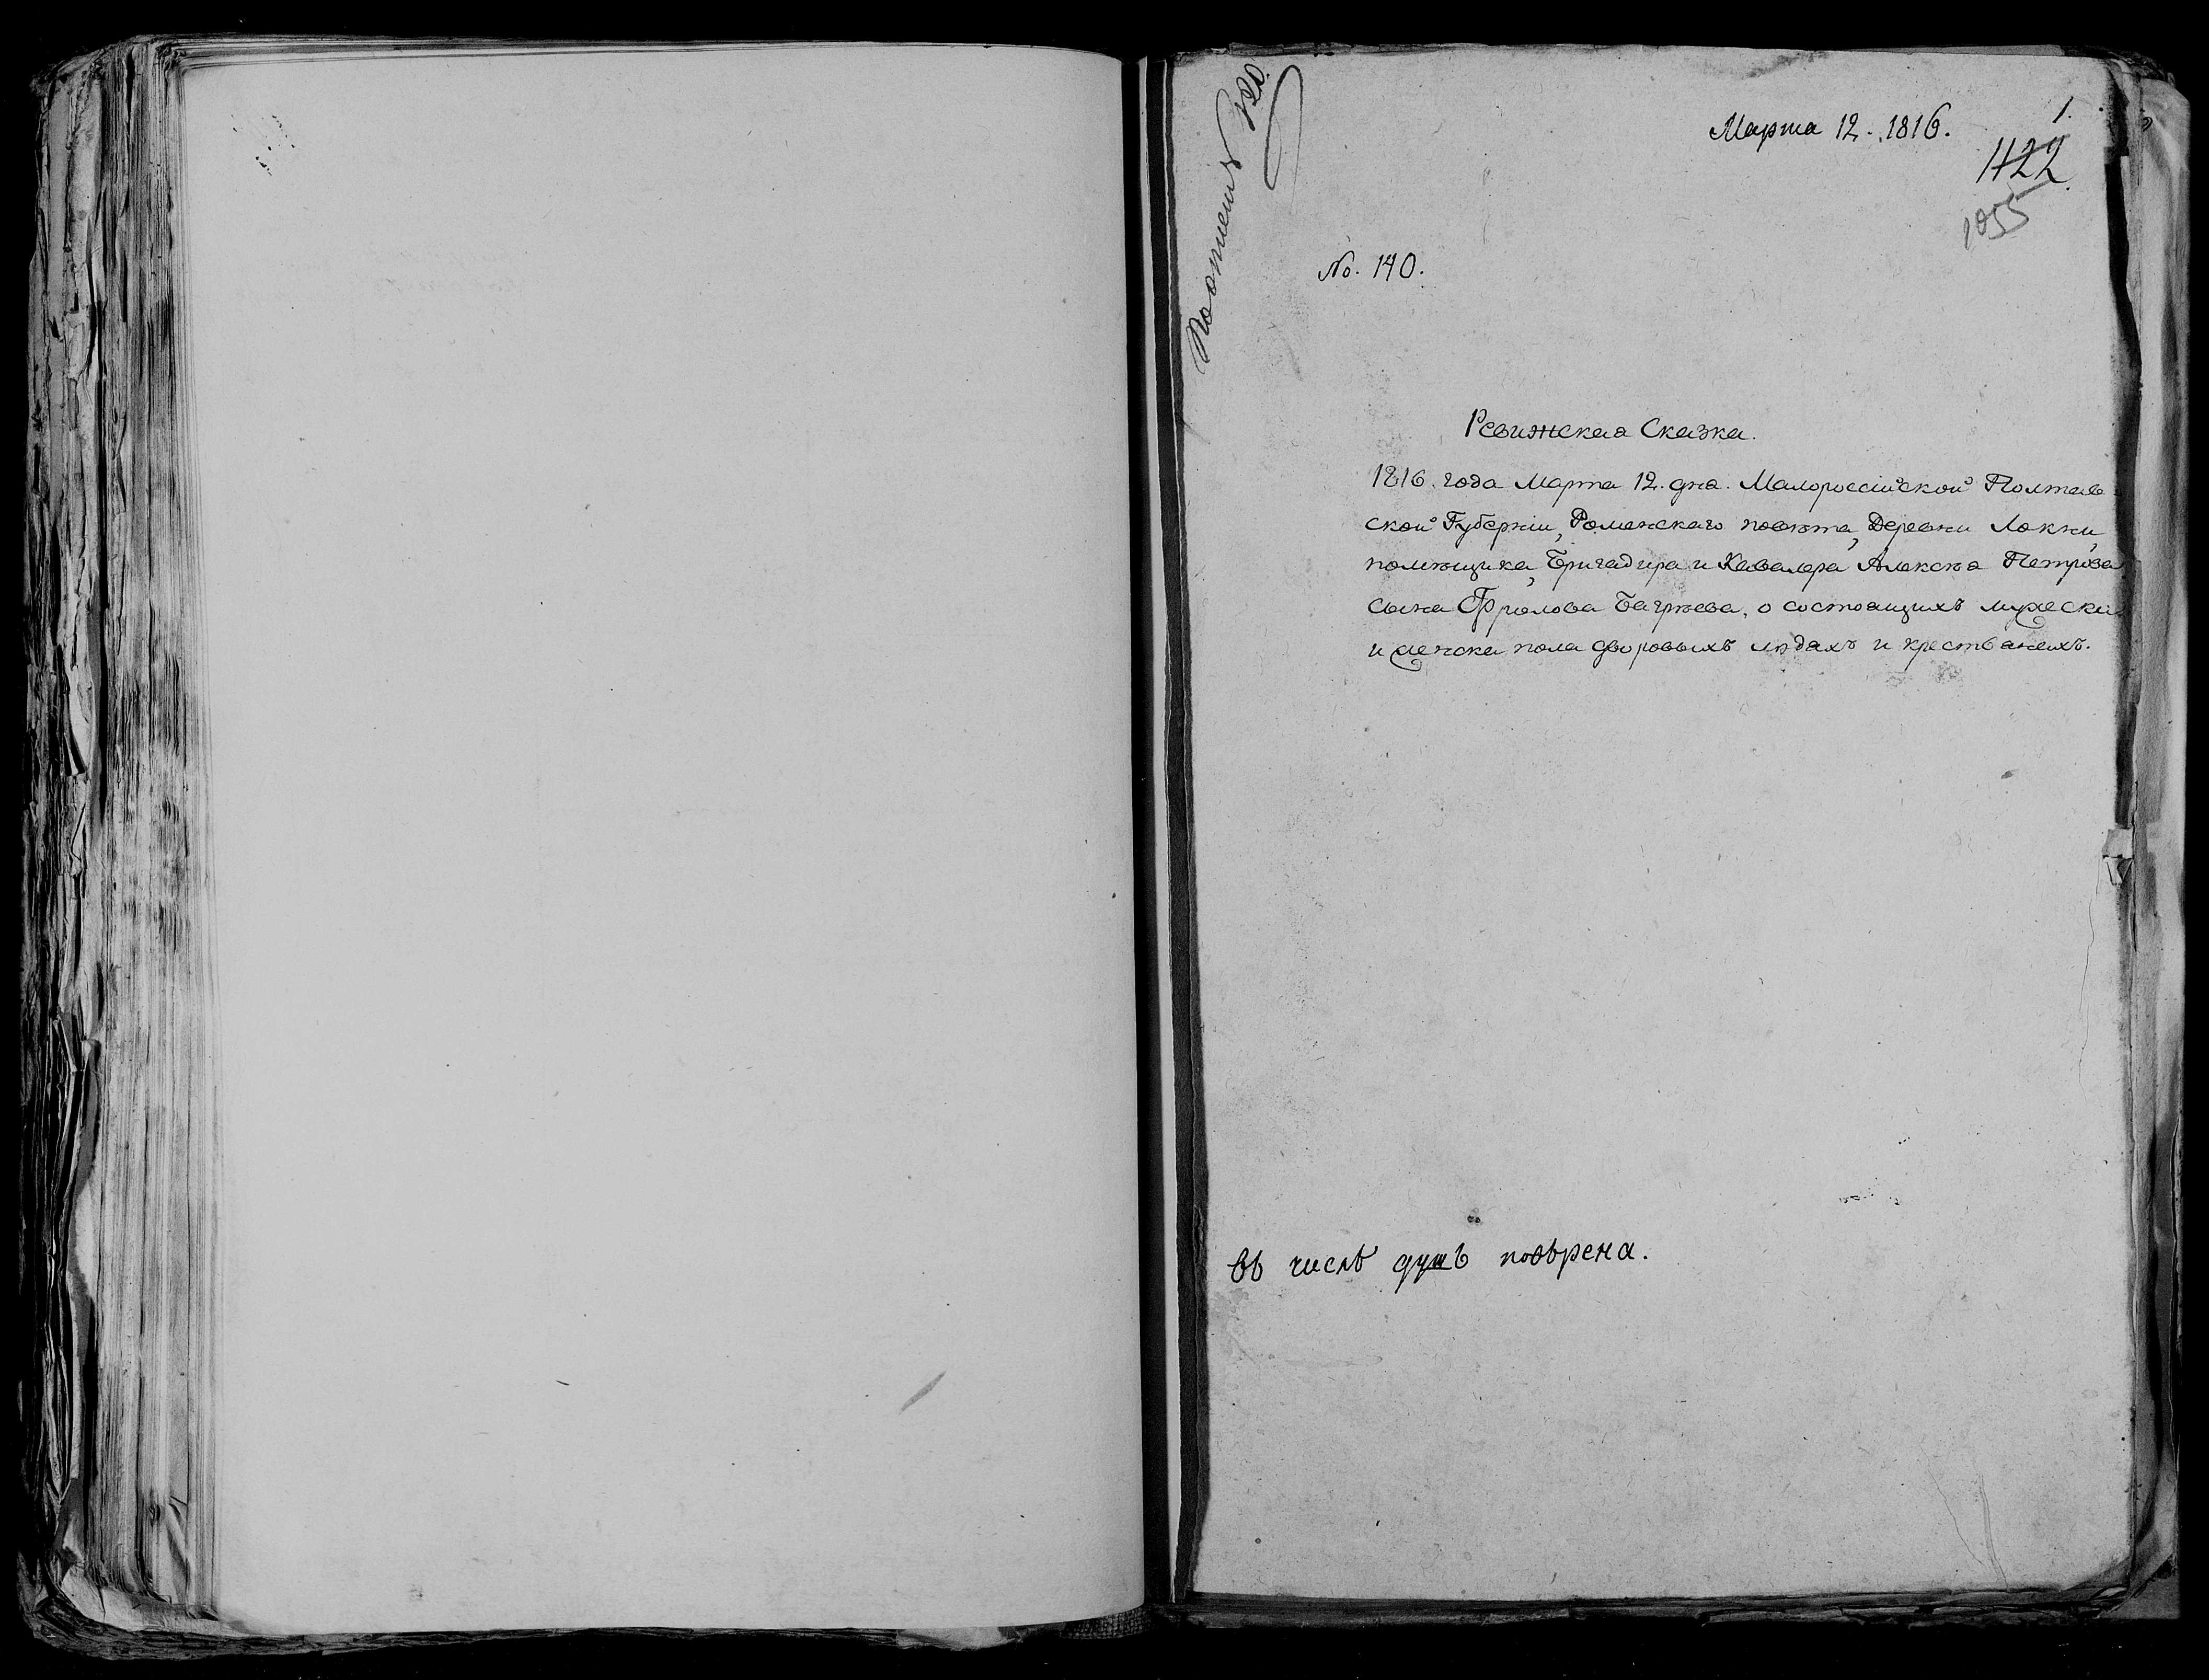 Марта 12. 1816.
1.
1422
1055
No. 140.
Ревижская Сказка.
1816. года Марта 12. дня. Малороссійской Полтав-
ской Губерніи, Роменскаго повѣта, Деревни Локни,
помѣщика, Бригадира и Кавалера Алексѣя Петрова
сына Фролова Багрѣева, о состоящихъ мужеска
и женска пола дворовыхъ людахъ и крестьянехъ.
въ числѣ душъ повѣрена.